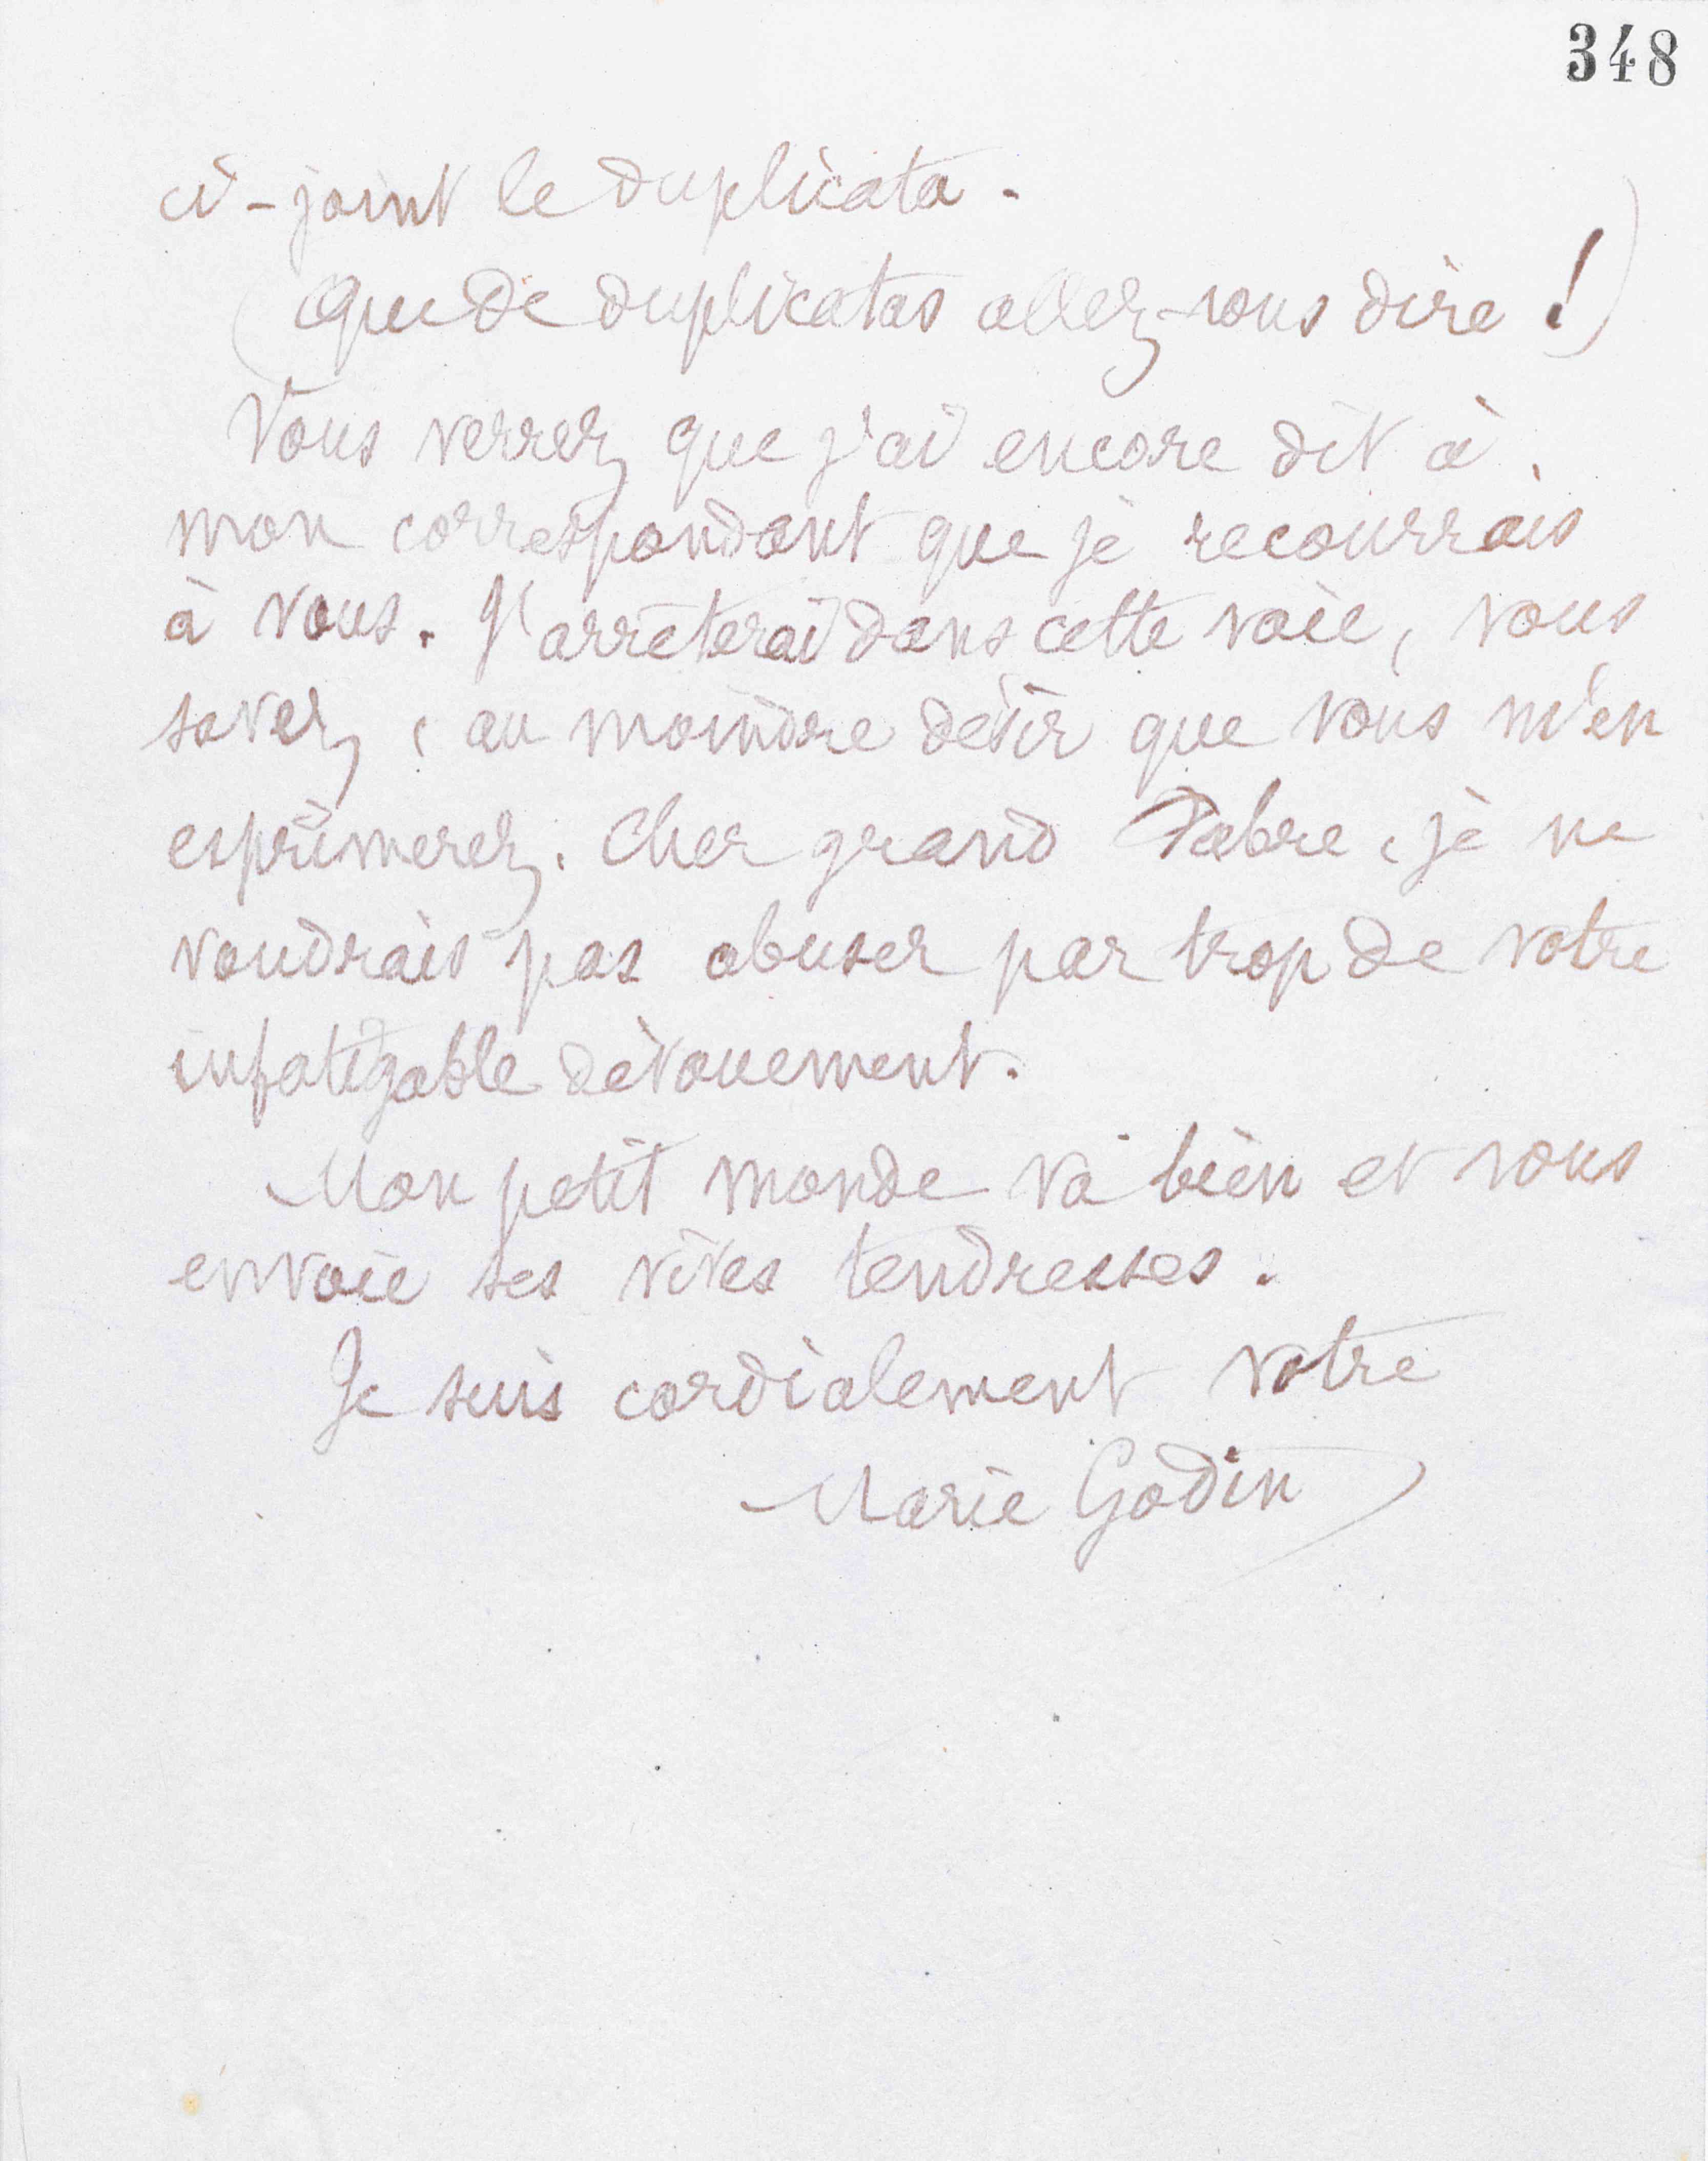 348
ci-joint le duplicata.
(Que de duplicatas allez-vous dire !)
Vous verrez que j'ai encore dit à
mon correspondant que je recourrais
à vous. J'arrêterai dans cette voie, vous
savez, au moindre désir que vous m'en
exprimerez. Cher grand Fabre, je ne
voudrais pas abuser par trop de votre
infatigable dévouement.
Mon petit monde va bien et vous
envoie ses vives tendresses.
Je suis cordialement votre
Marie Godin